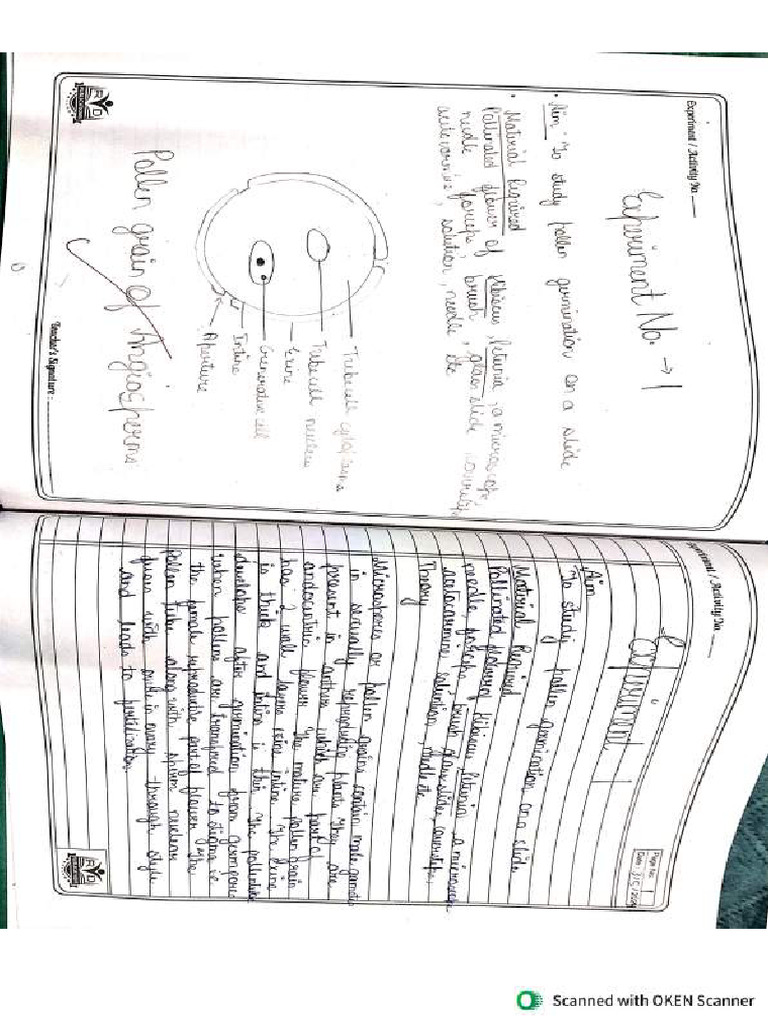 Experiment / Activity No.
Experiment No. → 1
• Aim - To study pollen germination on a slide
• Material Required
Pollinated flower of Hibiscus, Petunia, a microscope
needle, forceps, brush, glass slide coverslip
acetocarmine, solution, needle etc
Tubecell cytoplasm
Tubecell nucleus
Exine
Generative cell
Intine
Aperture
Pollen grain of Angiosperms
Teacher's Signature :
Experiment / Activity No.
Page No. 1
Experiment 1
Aim
To study pollen germination on a slide
Material Required
Pollinated flower of Hibiscus, Petunia, a microscope
needle, forceps, brush, glass slide, coverslip,
acetocarmine, solution, needle etc
Theory
Microspores or pollen grains contain male gametes
in sexually reproducing plants they are
present in anthers which are part of
flower. The mature pollen grain
has 2 wall layers Exine, intine. The Exine
is thick and intine is thin. The pollentube
develops after germination from germpores
when pollens are transfered to stigma ie
the female reproductive part of flower. The
Pollen tube along with sperm nucleus
fuses with ovule in ovary through style
and leads to fertilization.
Scanned with OKEN Scanner